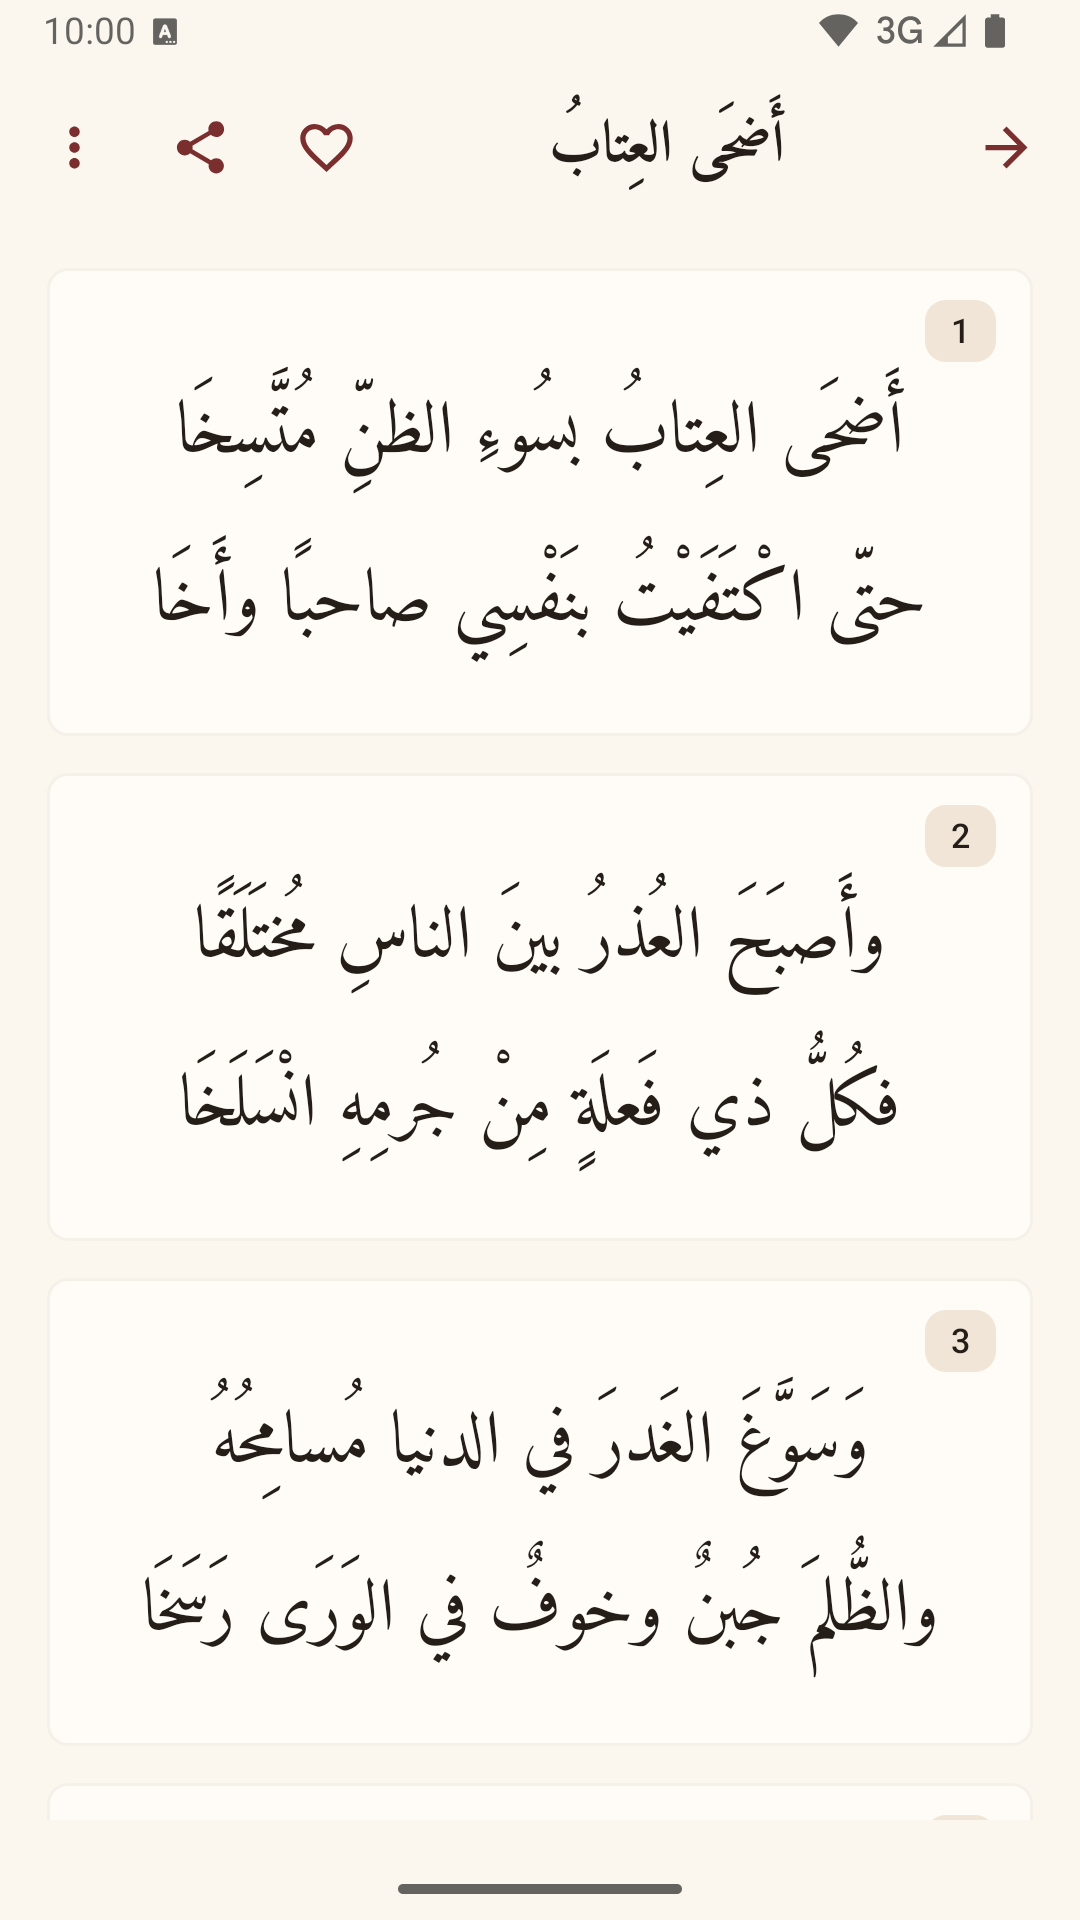 10:00
3G
أَضحَى العِتابُ
1
أَضحَى العِتابُ بسُوءِ الظنِّ مُتَّسِخَا
حتّى اكْتَفَيْتُ بنَفْسِي صاحباً وأَخَا
2
وأَصبَحَ العُذرُ بينَ الناسِ مُختَلَقًا
فكُلُّ ذي فَعلَةٍ مِنْ جُرمِهِ انْسَلَخَا
3
وَسَوَّغَ الغَدرَ في الدنيا مُسامِحُهُ
والظُّلمَ جُبنٌ وخوفٌ في الوَرَى رَسَخَا